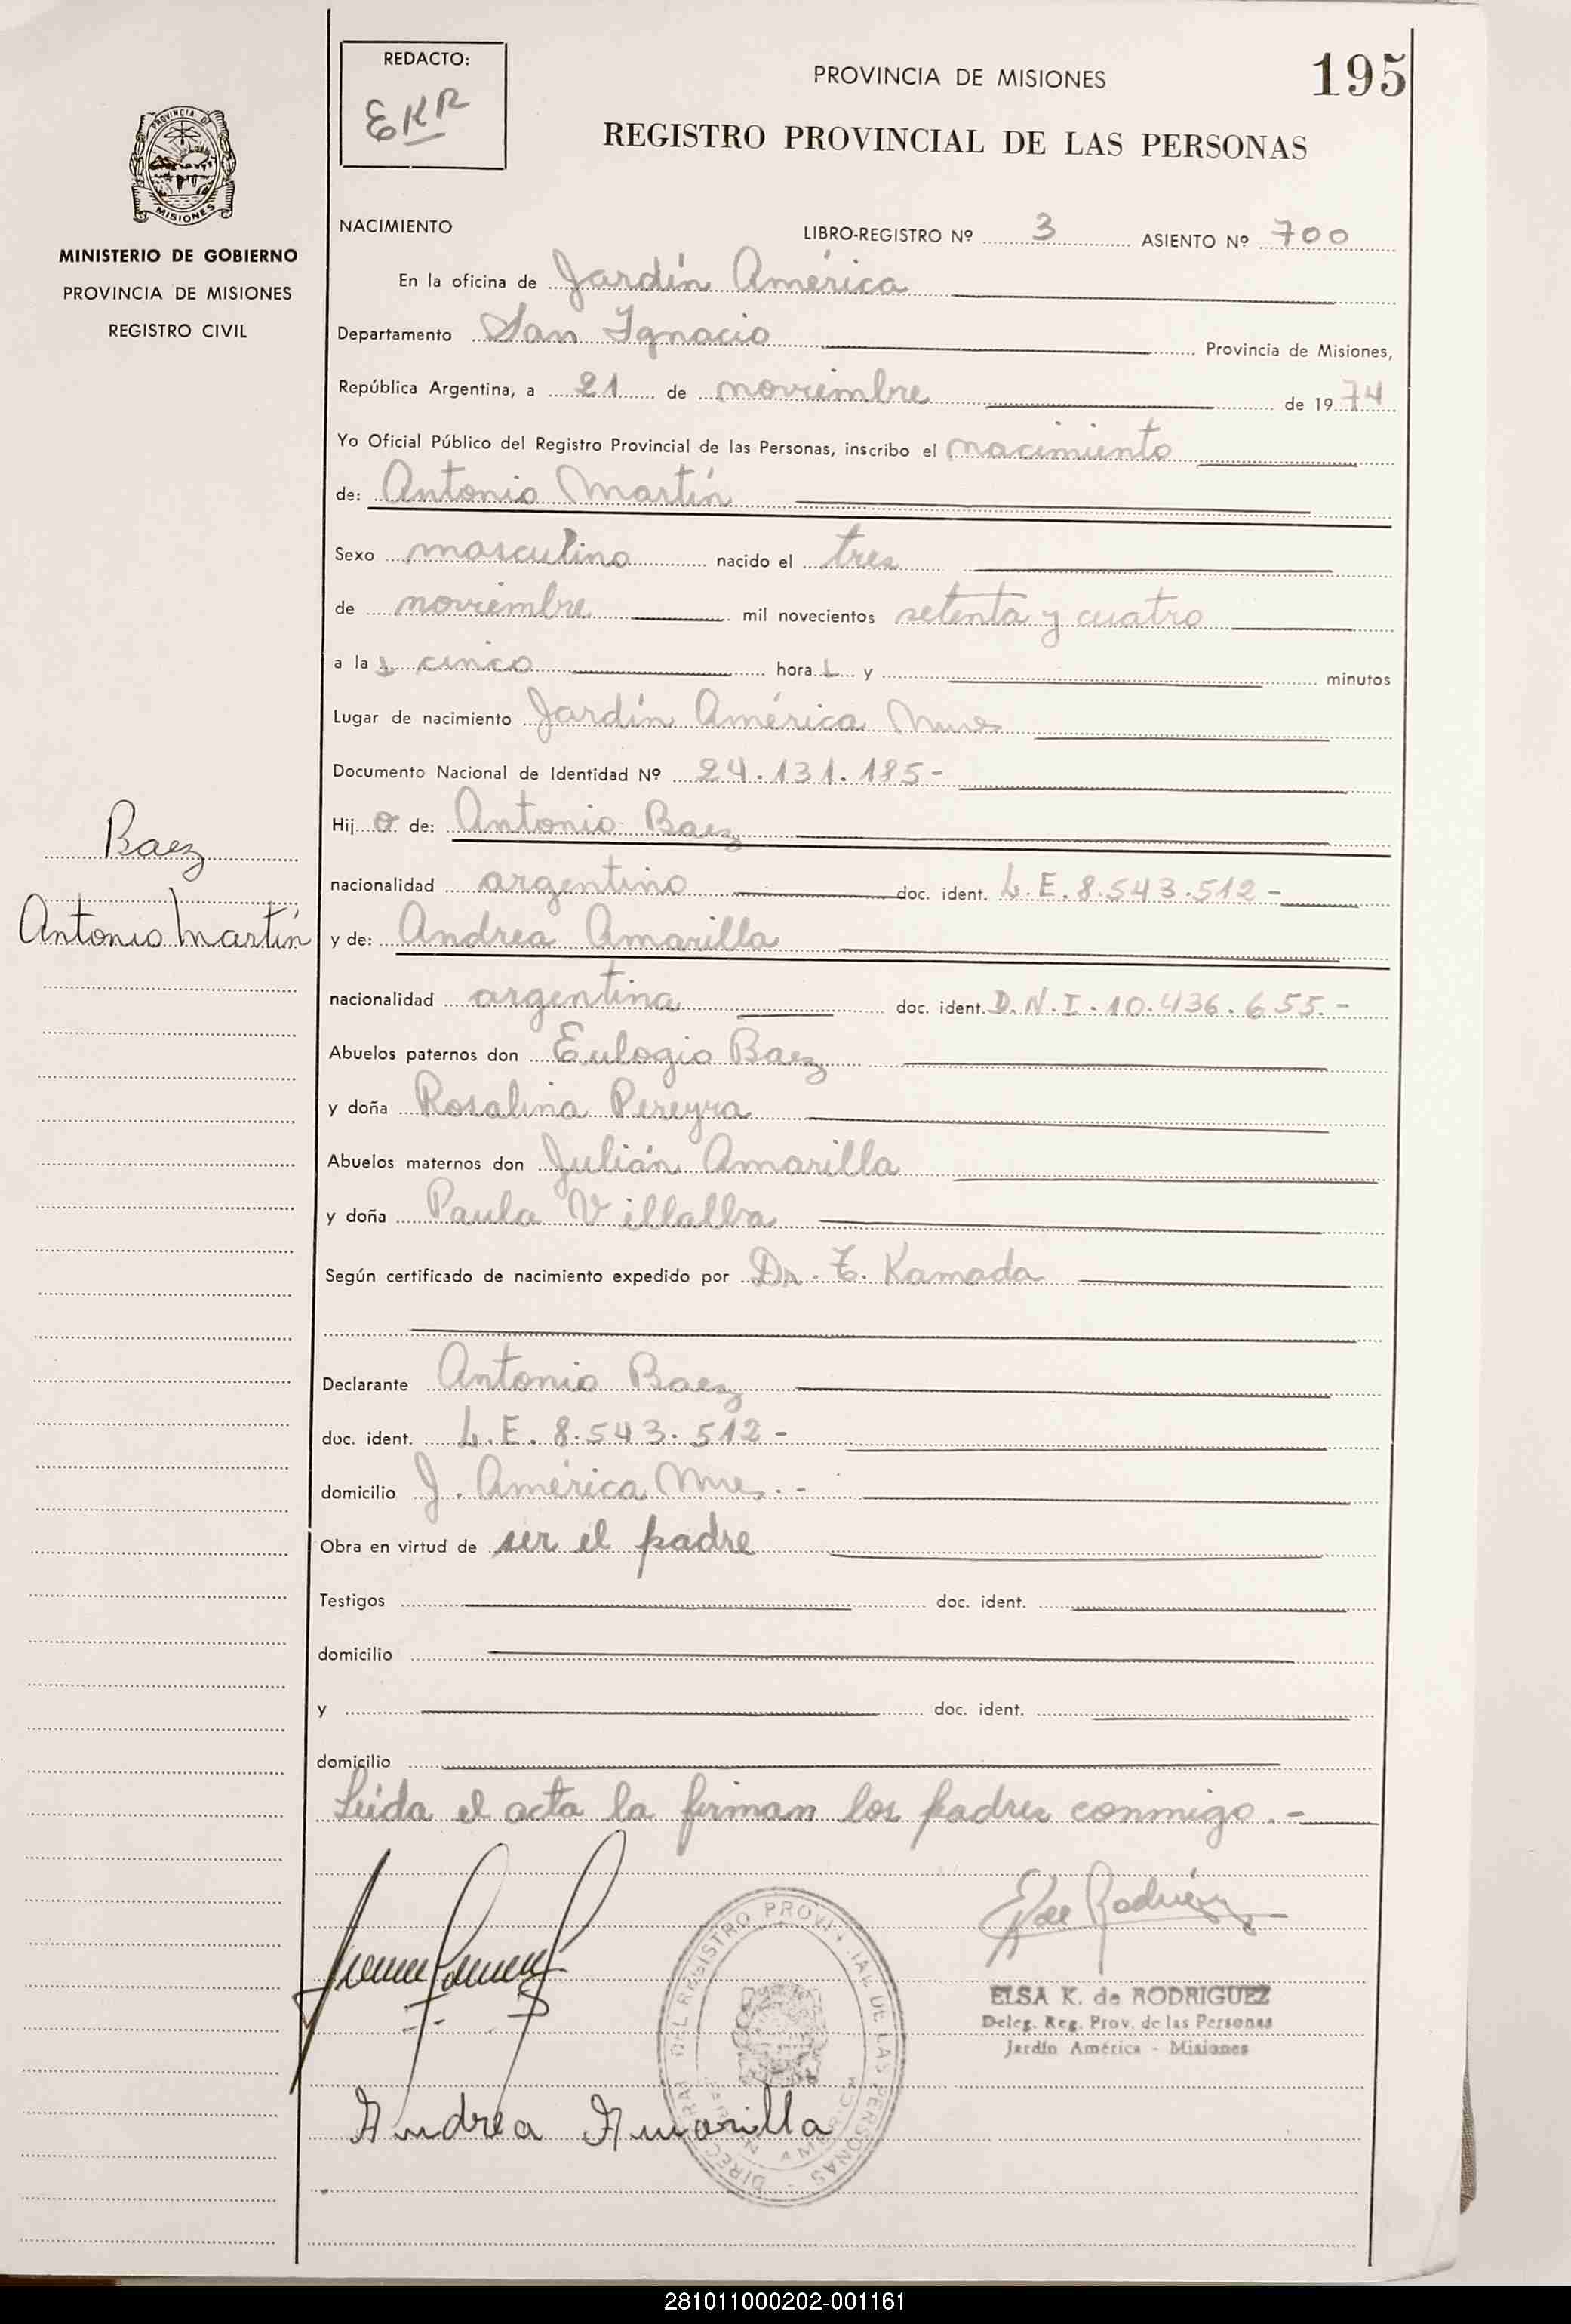 REDACTO:
EKR
PROVINCIA DE MISIONES
195
REGISTRO PROVINCIAL DE LAS PERSONAS
PROVINCIA DE
MISIONES
MINISTERIO DE GOBIERNO
PROVINCIA DE MISIONES
REGISTRO CIVIL
NACIMIENTO
LIBRO-REGISTRO Nº 3 ASIENTO Nº 700
En la oficina de Jardín América
Departamento San Ignacio Provincia de Misiones,
República Argentina, a 21 de noviembre de 1974
Yo Oficial Público del Registro Provincial de las Personas, inscribo el nacimiento
de: Antonio Martín
Sexo masculino nacido el tres
de noviembre mil novecientos setenta y cuatro
a las cinco horas y minutos
Lugar de nacimiento Jardín América Mnes
Documento Nacional de Identidad Nº 24.131.185-
Hijo de: Antonio Baez
nacionalidad argentino doc. ident. L.E. 8.543.512-
Baez
Antonio Martín
y de: Andrea Amarilla
nacionalidad argentina doc. ident. D.N.I. 10.436.655.-
Abuelos paternos don Eulogio Baez
y doña Rosalina Pereyra
Abuelos maternos don Julián Amarilla
y doña Paula Villalba
Según certificado de nacimiento expedido por Dr. T. Kamada
Declarante Antonio Baez
doc. ident. L.E. 8.543.512-
domicilio J. América Mnes.-
Obra en virtud de ser el padre
Testigos doc. ident.
domicilio
y doc. ident.
domicilio
Leída el acta la firman los padres conmigo.-
ELSA K. de RODRIGUEZ
Deleg. Reg. Prov. de las Personas
Jardín América - Misiones
Andrea Amarilla
281011000202-001161